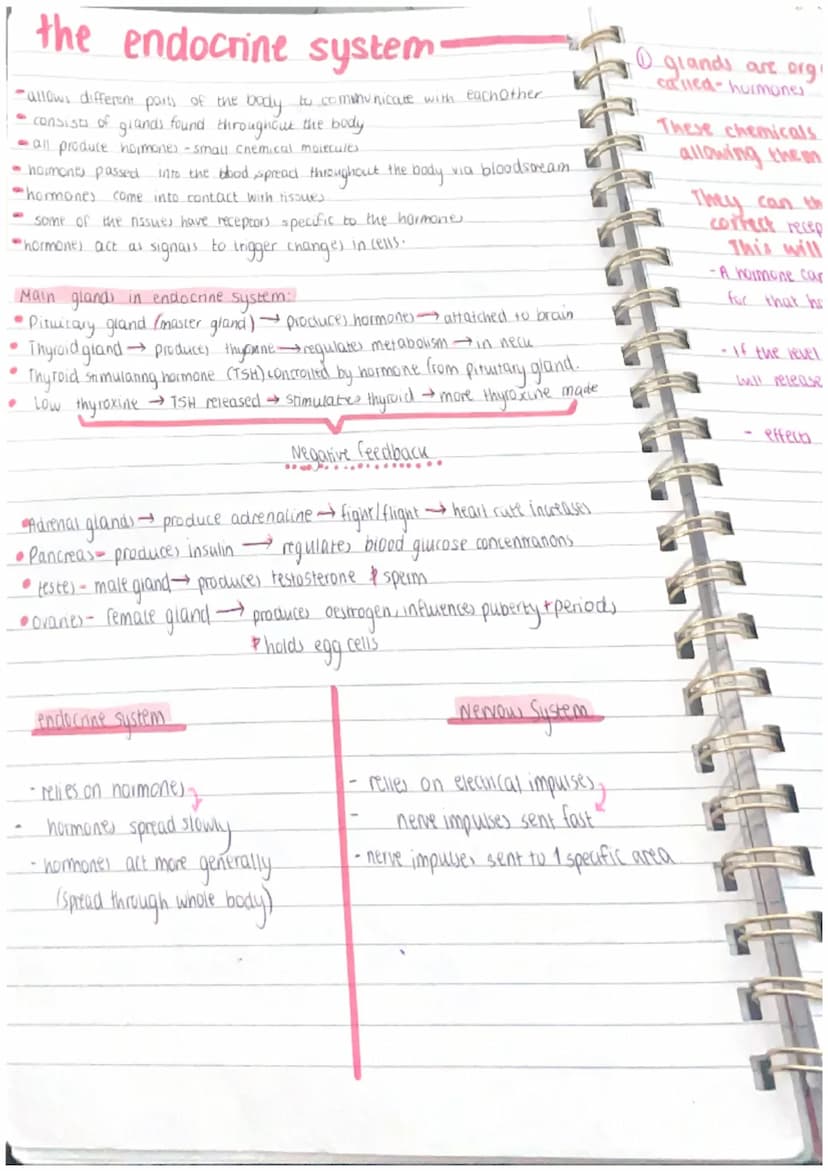 the endocrine system
-allows different parts of the body to communicate with eachother
- consists of glands found throughout the body
- all produce hormones - small chemical molecules
- hormones passed into the blood, spread throughout the body via bloodstream
-hormones come into contact with tissues
- some of the tissues have receptors specific to the hormones
-hormones act as signals to trigger changes in cells.
Main glands in endocrine system:
• Pituitary gland (master gland) → produces hormones → attatched to brain
• Thyroid gland → produces thyroxine → regulates metabolism → in neck
• Thyroid stimulating hormone (TSH) controlled by hormone from pituitary gland.
• Low thyroxine → TSH released → stimulates thyroid → more thyroxine made
Negative feedback
•Adrenal glands → produce adrenaline → fight/flight → heart rate increases
• Pancreas - produces insulin → regulates blood glucose concentrations
• testes - male gland → produces testosterone & sperm
• ovaries - female gland → produces oestrogen, influences puberty + periods
& holds egg cells
endocrine system
- relies on hormones
- hormones spread slowly
- hormones act more generally
(spread through whole body)
Nervous System
- relies on electrical impulses
- nerve impulses sent fast
- nerve impulses sent to 1 specific area
① glands are org
called - hormones
These chemicals
allowing them
They can th
correct recep
This will
- A hormone can
for that ho
- If the level
will release
- effects